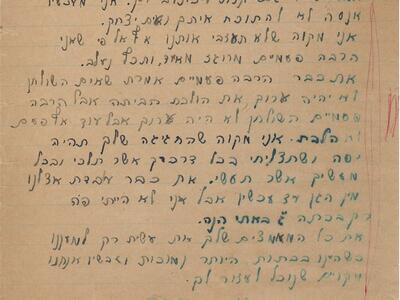 אנסה לא להתווכח איתך ועם יצחק.
אני מקוה שלא תעזבי אותנו אף אל פי שאני
הרבה פעמים מרוגז מאוד ותכף נעלב.
את כבר הרבה פעמים אמרת שאים השולחן
לא יהיה ערוך, את הולכת הביתה אבל הרבה
פעמים השולחן לא היה ערוך אבל עוד אף פעם
לא הלכת. אני מקוה שהחגיגה שלך תהיה
יפה ושתצליחי בכל דרכך אשר תלכי ובכל
מעשים אשר תעשי. את כבר עובדת אצלנו
מין הגן עד עכשיו אבל אני לא הייתי פה
רק בכתה ג באתי הנה.
את כל המאמצים שלך את עשית רק למעננו
כשהינו בכתות היותר נמוכות ועכשיו אנחנו
מקויים שנוכל לעזור לך.